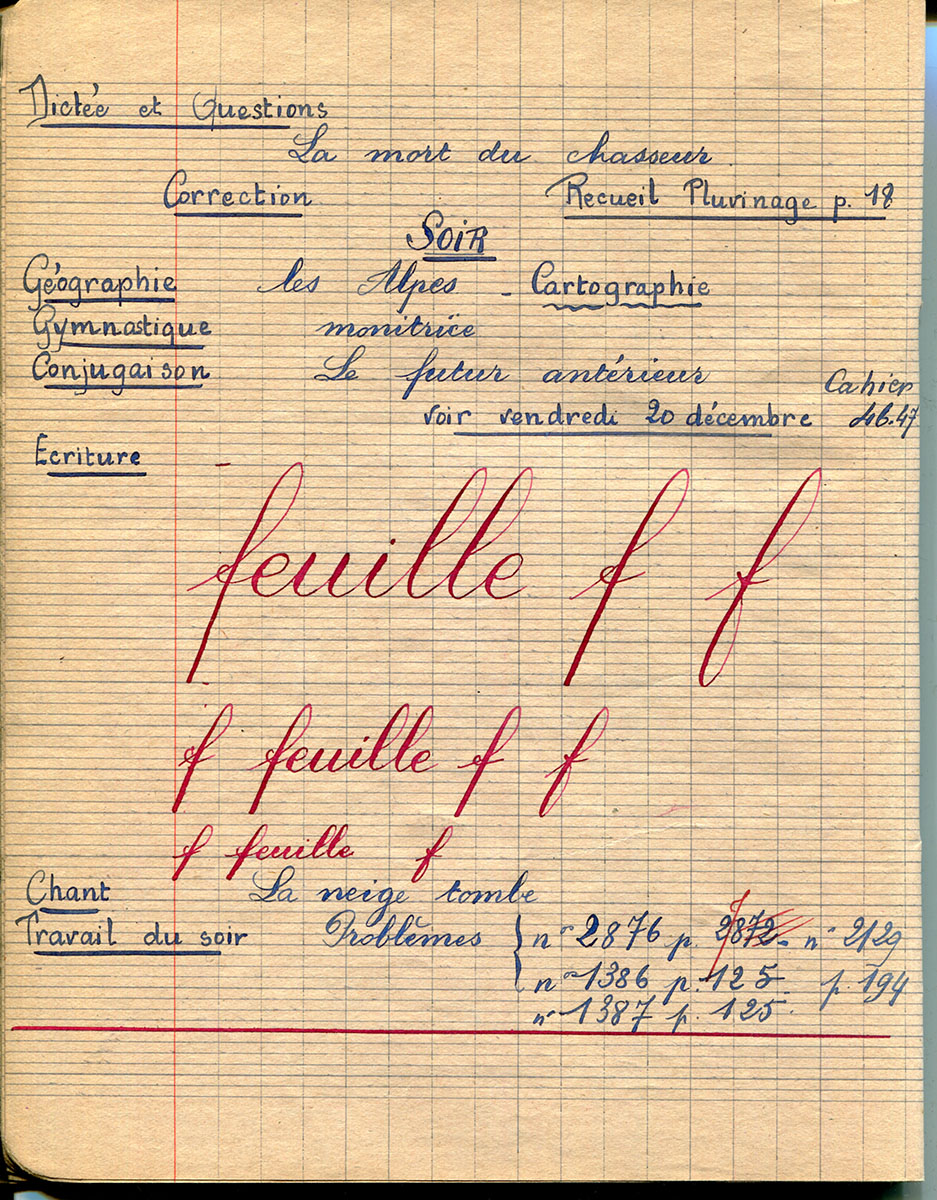 Dictée et Questions
La mort du chasseur
Correction Recueil Pluvinage p. 18
SOIR
Géographie les Alpes - Cartographie
Gymnastique monitrice
Conjugaison Le futur antérieur Cahier
voir vendredi 20 décembre 46.47
Ecriture
feuille f f
f feuille f f
f feuille f
Chant La neige tombe
Travail du soir Problèmes { n° 2876 p. 2872 - n° 2129
n° 1386 p. 125 p. 194
n° 1387 p. 125.